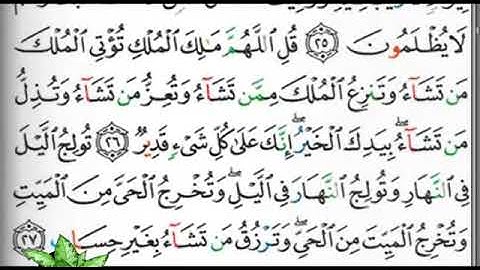 لَا يُظْلَمُونَ ۝٢٥ قُلِ ٱللَّهُمَّ مَٰلِكَ ٱلْمُلْكِ تُؤْتِي ٱلْمُلْكَ
مَن تَشَآءُ وَتَنزِعُ ٱلْمُلْكَ مِمَّن تَشَآءُ وَتُعِزُّ مَن تَشَآءُ وَتُذِلُّ
مَن تَشَآءُۖ بِيَدِكَ ٱلْخَيْرُۖ إِنَّكَ عَلَىٰ كُلِّ شَيْءٍ قَدِيرٌ ۝٢٦ تُولِجُ ٱلَّيْلَ
فِي ٱلنَّهَارِ وَتُولِجُ ٱلنَّهَارَ فِي ٱلَّيْلِۖ وَتُخْرِجُ ٱلْحَيَّ مِنَ ٱلْمَيِّتِ
وَتُخْرِجُ ٱلْمَيِّتَ مِنَ ٱلْحَيِّۖ وَتَرْزُقُ مَن تَشَآءُ بِغَيْرِ حِسَابٍ ۝٢٧